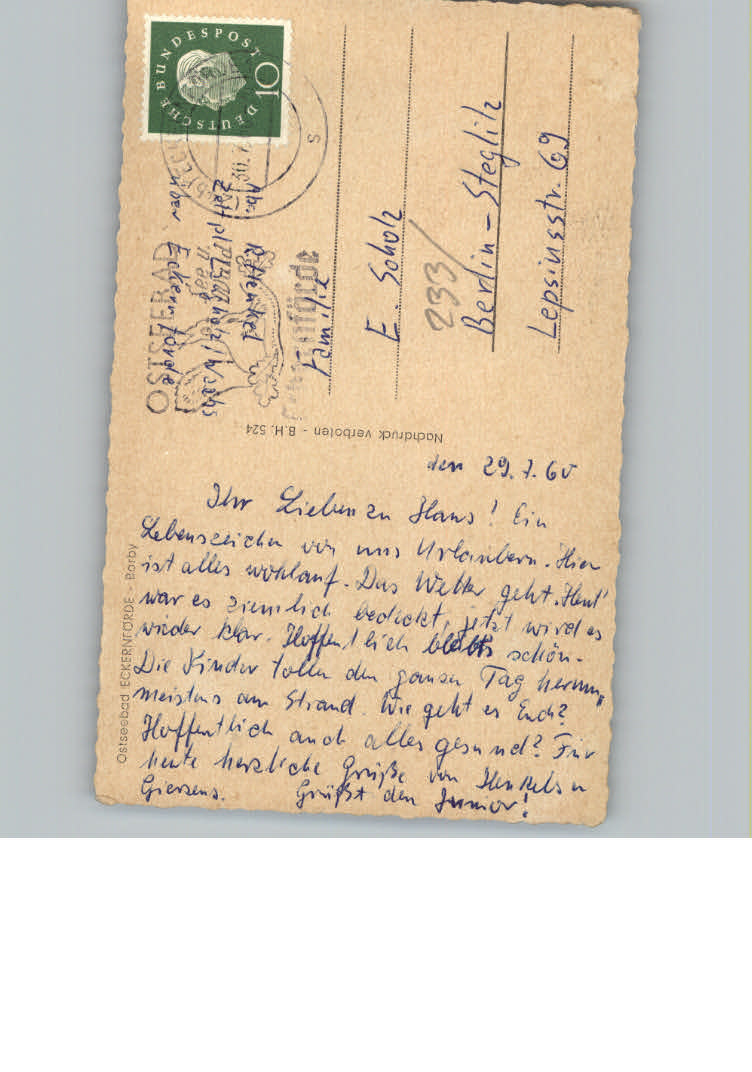 den 29.7.60
Ihr Lieben zu Haus! Ein
Lebenszeichen von uns Urlaubern. Hier
ist alles wohlauf. Das Wetter geht. Heut'
war es ziemlich bedeckt, jetzt wird es
wieder klar. Hoffentlich bleibts schön.
Die Kinder tollen den ganzen Tag herum,
meistens am Strand. Wie geht es Euch?
Hoffentlich auch alles gesund? Für
heute herzliche Grüße von Henkels u
Giersens. Grüßt den Junior!
Ostseebad ECKERNFÖRDE - Borby
Nachdruck verboten - B.H. 524
DEUTSCHE BUNDESPOST
10
OSTSEEBAD
Eckernförde
30.7.
s
Abs. R. Henkel
Zeltpl.
über Eckernförde
Familie
E. Scholz
233/
Berlin-Steglitz
Lepsiusstr. 69